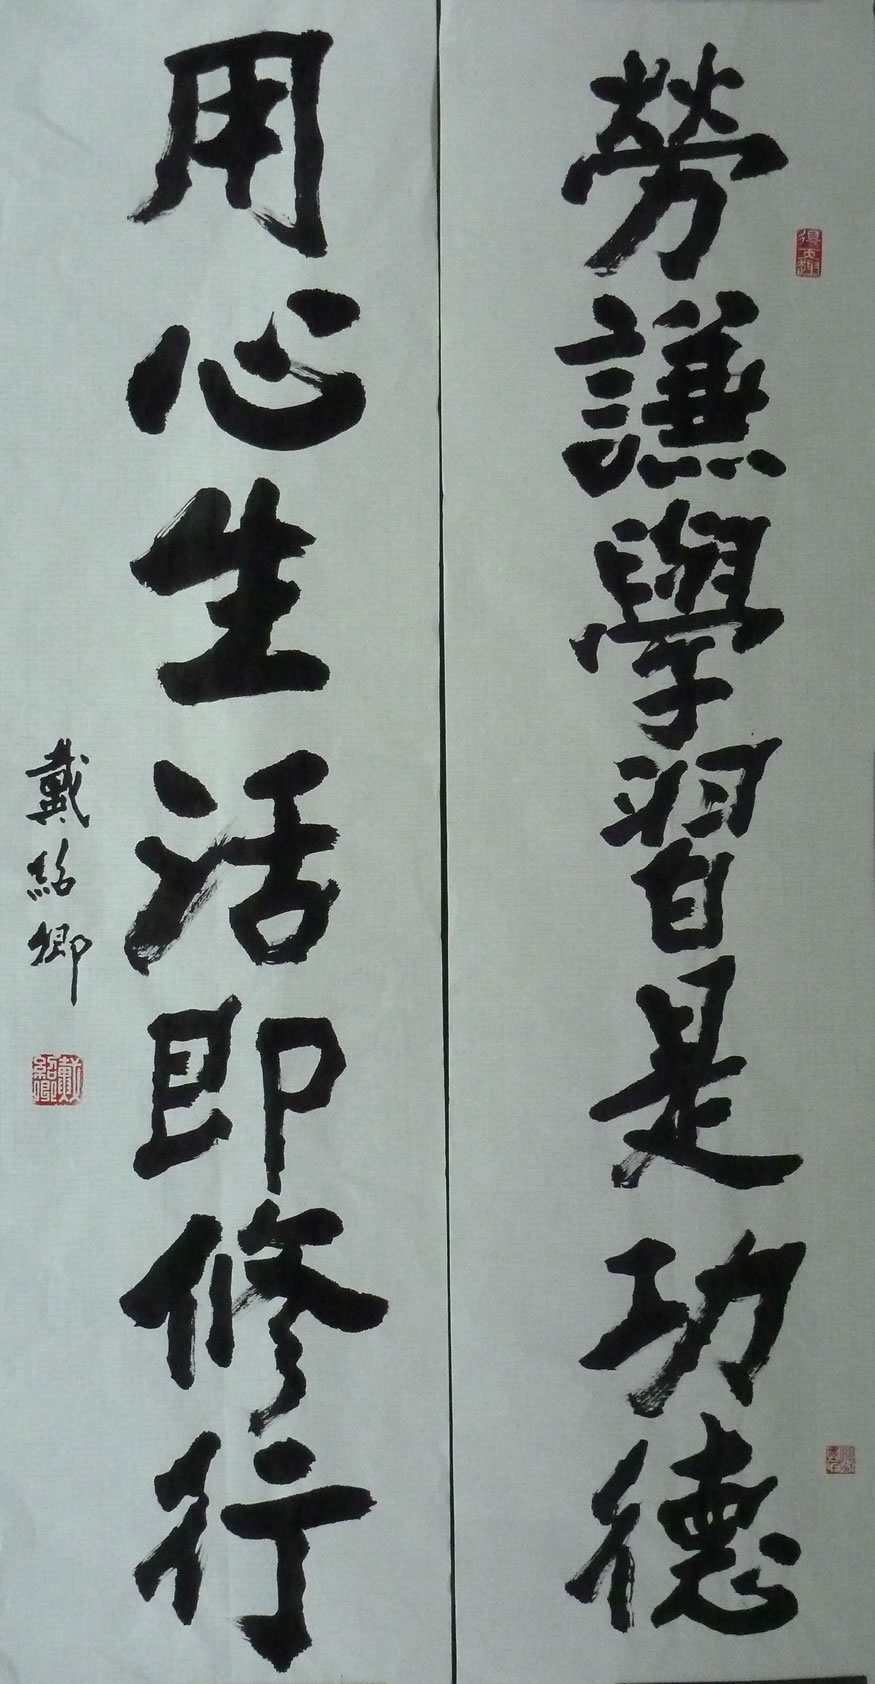 勞謙學習是功德
用心生活即修行
戴紹卿
戴紹卿